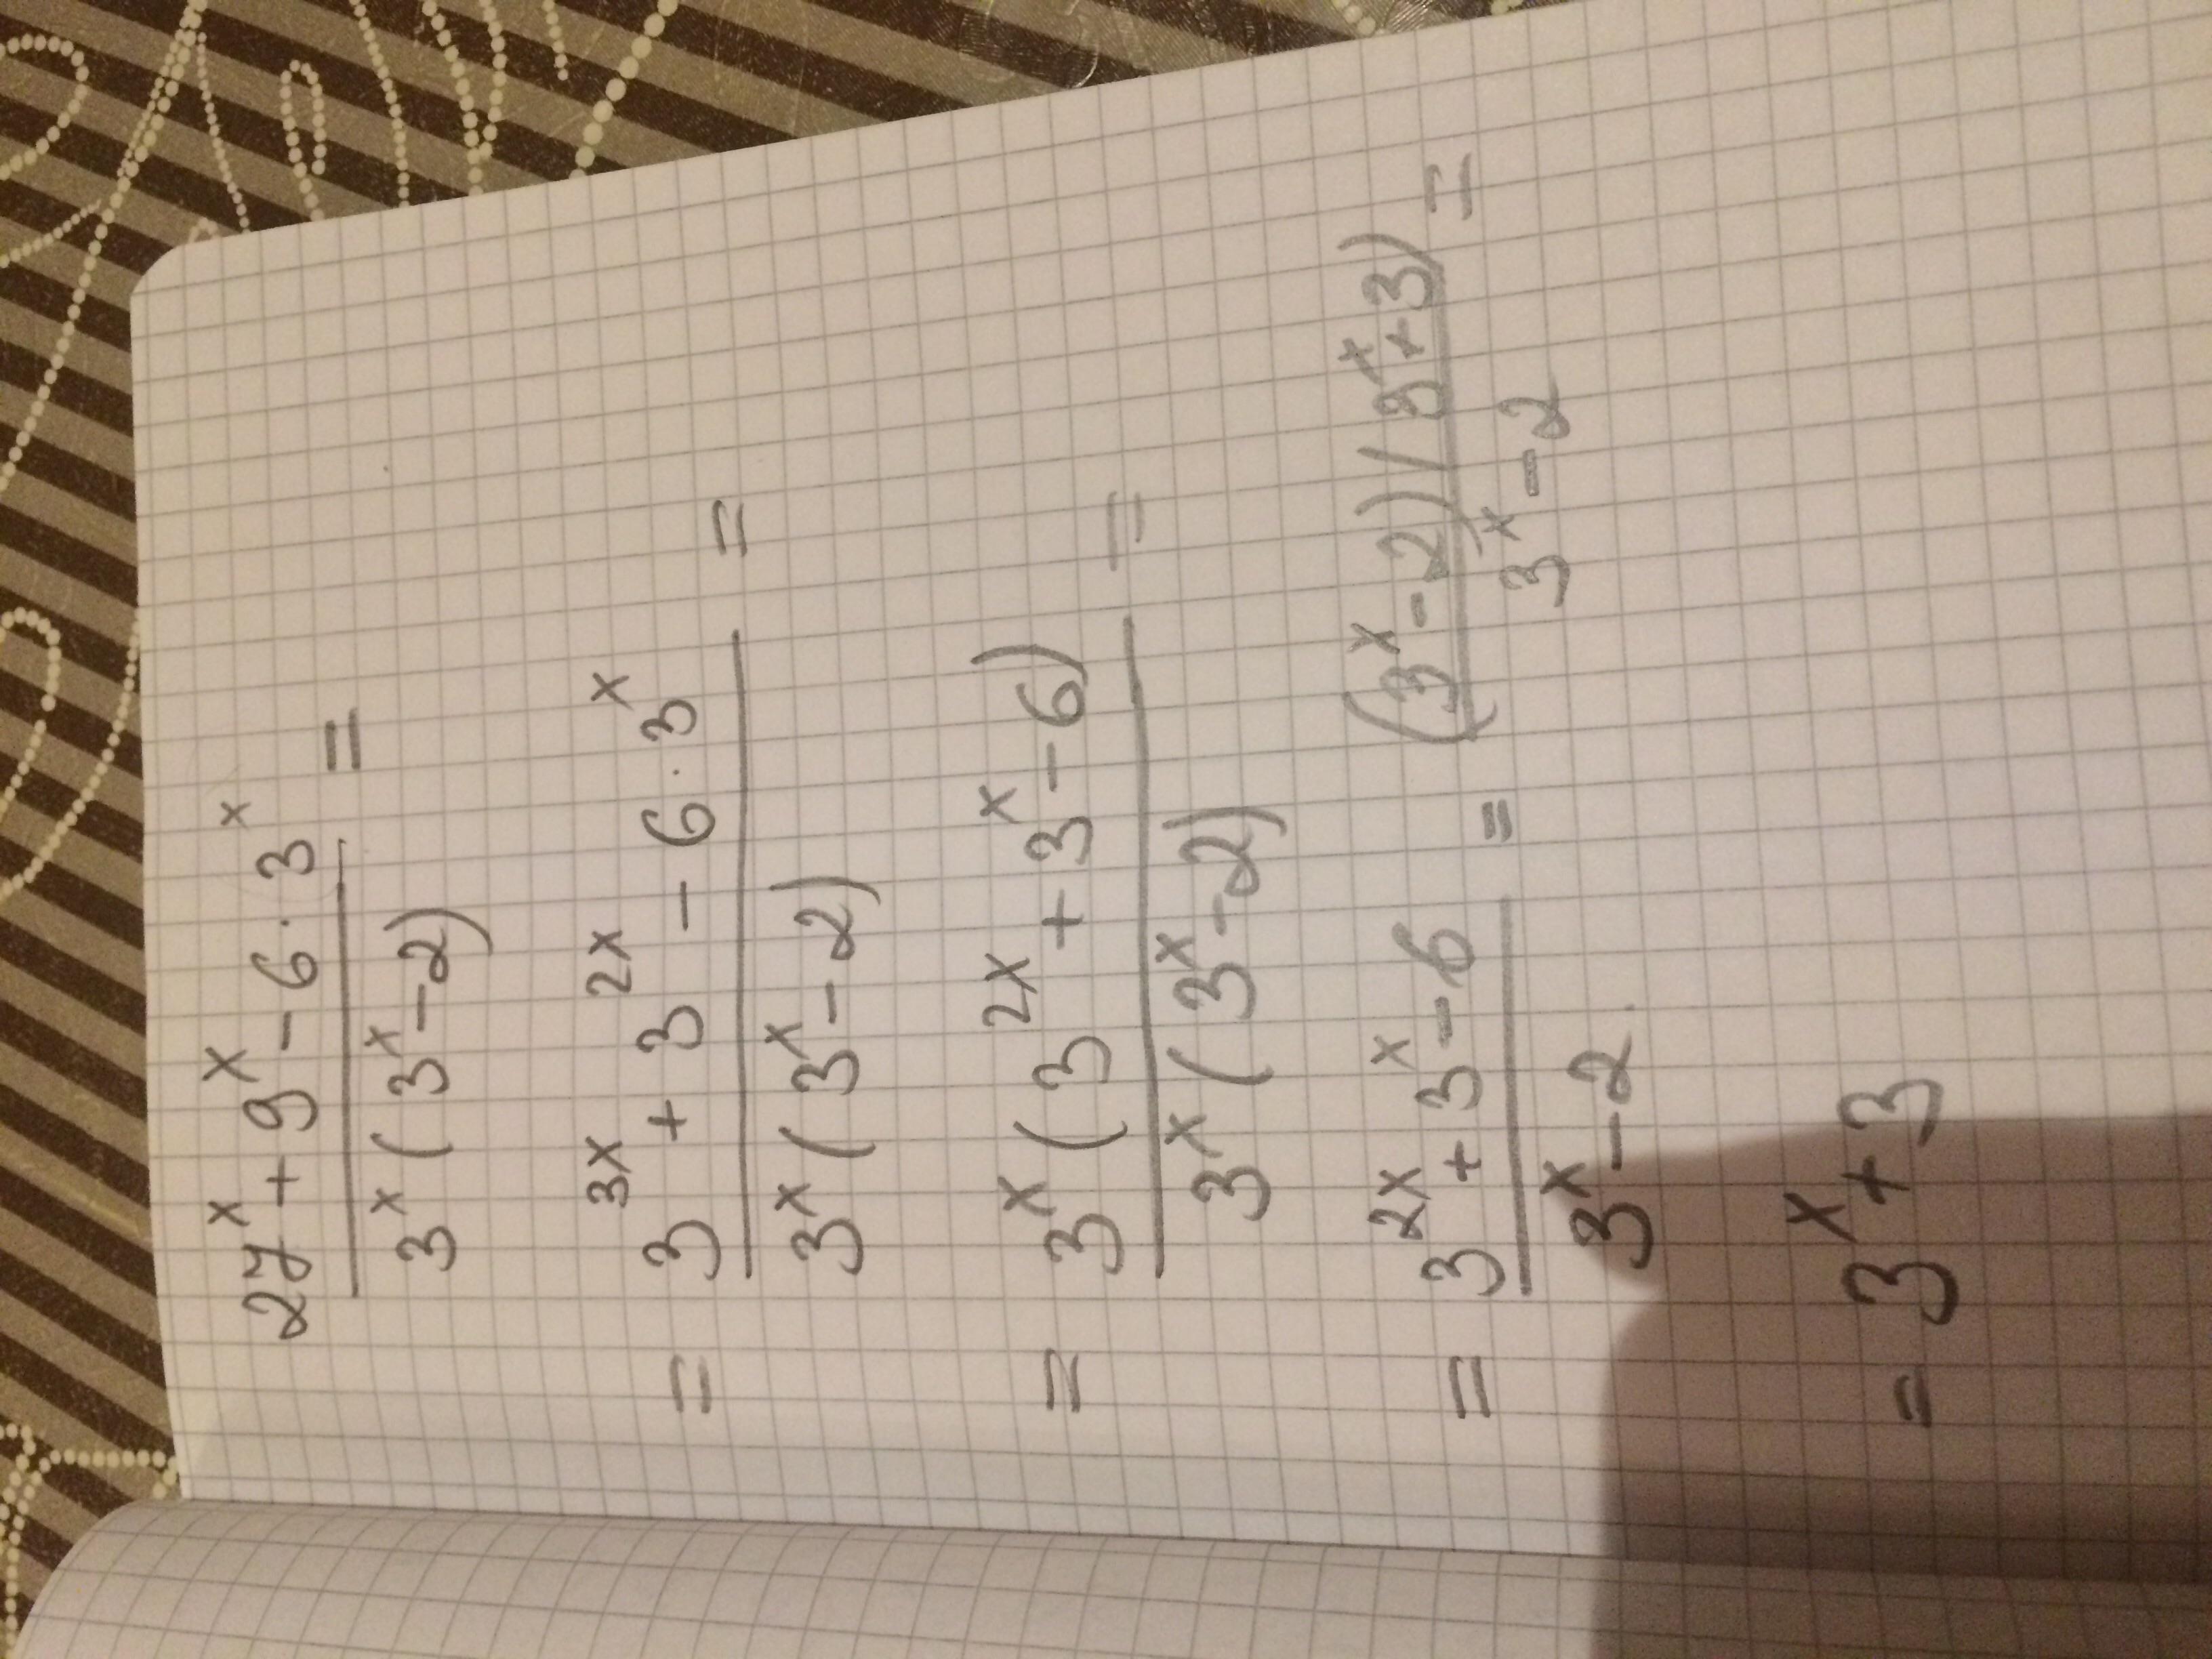 27ˣ + 9ˣ - 6 · 3ˣ =
3ˣ ( 3ˣ - 2)
= 3³ˣ + 3²ˣ - 6 · 3ˣ =
3ˣ ( 3ˣ - 2)
= 3ˣ ( 3²ˣ + 3ˣ - 6) =
3ˣ ( 3ˣ - 2)
= 3²ˣ + 3ˣ - 6 = (3ˣ - 2) ( 3ˣ + 3) =
3ˣ - 2 3ˣ - 2
= 3ˣ + 3